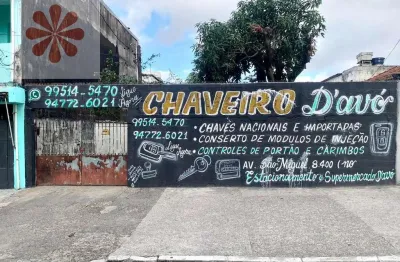 99514.5470 Ligue
94772.6021 Agora
CHAVEIRO D'avó
99514.5470
94772.6021 Ligue Agora
• CHAVES NACIONAIS E IMPORTADAS
• CONSERTO DE MODULOS DE INJEÇÃO
• CONTROLES DE PORTÃO E CARIMBOS
AV. São Miguel 8.400 (no
Estacionamento do Supermercado D'avó